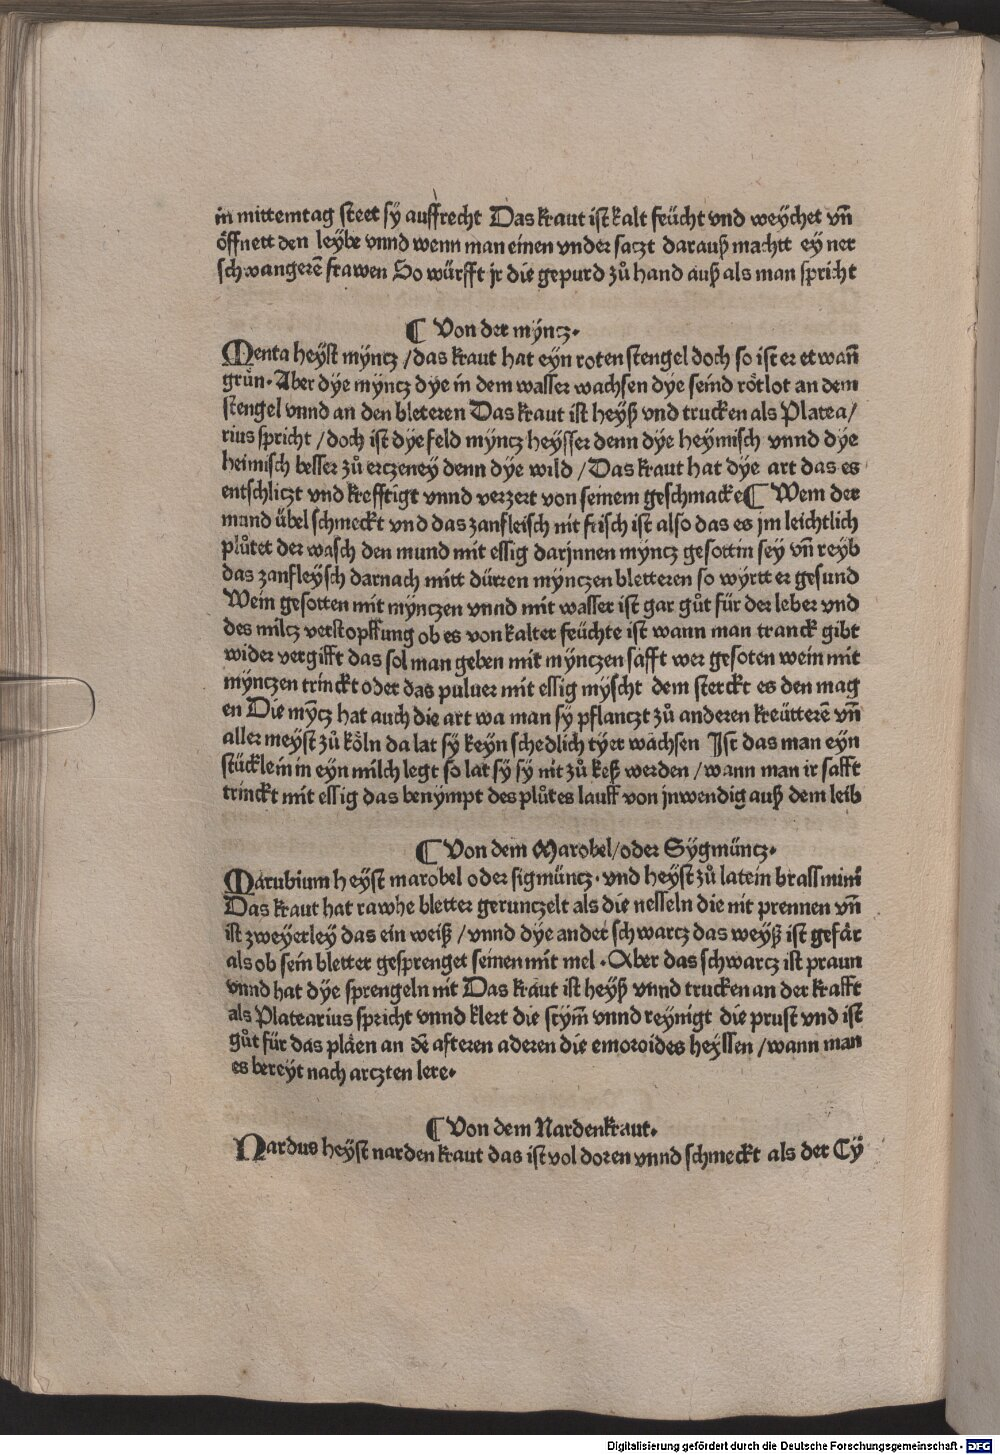 in mittemtag steet sÿ auffrecht Das kraut ist kalt feücht vnd weÿchet vn̄
öffnett den leÿbe vnnd wenn man einen vnder satzt darauß machtt eÿner
schwangerē frawen So würfft jr die gepurd zů hand auß als man spricht
¶ Von der mÿntz.
Menta heÿst mÿntz / das kraut hat eÿn roten stengel doch so ist er etwañ
grůn. Aber dÿe mÿntz dÿe in dem wasser wachsen dÿe seind rötlot an dem
stengel vnnd an den bleteren Das kraut ist heÿß vnd trucken als Platea/
rius spricht / doch ist dÿe feld mÿntz heÿsser denn dÿe heÿmisch vnnd dÿe
heimisch besser zů ertzeneÿ denn dÿe wild / Das kraut hat dÿe art das es
entschlitzt vnd krefftigt vnnd verzert von seinem geschmacke ¶ Wem der
mund übel schmeckt vnd das zanfleisch nit frisch ist also das es jm leichtlich
plůtet der wasch den mund mit essig darjnnen mÿntz gesottin seÿ vn̄ reÿb
das zanfleÿsch darnach mitt dürren mÿntzen bletteren so wÿrtt er gesund
Wein gesotten mit mÿntzen vnnd mit wasser ist gar gůt für der leber vnd
des miltz verstopffung ob es von kalter feüchte ist wann man tranck gibt
wider vergifft das sol man geben mit mÿntzen safft wer gesoten wein mit
mÿntzen trinckt oder das puluer mit essig mÿscht dem sterckt es den mag
en Die mÿ̄tz hat auch die art wa man sÿ pflantzt zů anderen kreütterē vn̄
aller meÿst zů köln da lat sÿ keÿn schedlich tÿer wachsen Ist das man eÿn
stücklein in eÿn milch legt so lat sÿ sÿ nit zů keß werden / wann man ir safft
trinckt mit essig das benÿmpt des plůtes lauff von jnwendig auß dem leib
¶ Von dem Marobel / oder Sÿgmüntz.
Marubium heÿst marobel oder sigmüntz. vnd heÿst zů latein brassiniū
Das kraut hat rawhe bletter geruntzelt als die nesseln die nit prennen vn̄
ist zweÿerleÿ das ein weiß / vnnd dÿe ander schwartz das weÿß ist gefär
als ob sein bletter gesprenget seinen mit mel. Aber das schwartz ist praun
vnnd hat dÿe sprengeln nit Das kraut ist heÿß vnnd trucken an der krafft
als Platearius spricht vnnd klert die stÿm̄ vnnd reÿnigt die prust vnd ist
gůt für das pläen an dē afteren aderen die emoroides heÿssen / wann man
es bereÿt nach artzten lere.
¶ Von dem Nardenkraut.
Nardus heÿst narden kraut das ist vol doren vnnd schmeckt als der Cÿ
Digitalisierung gefördert durch die Deutsche Forschungsgemeinschaft - DFG